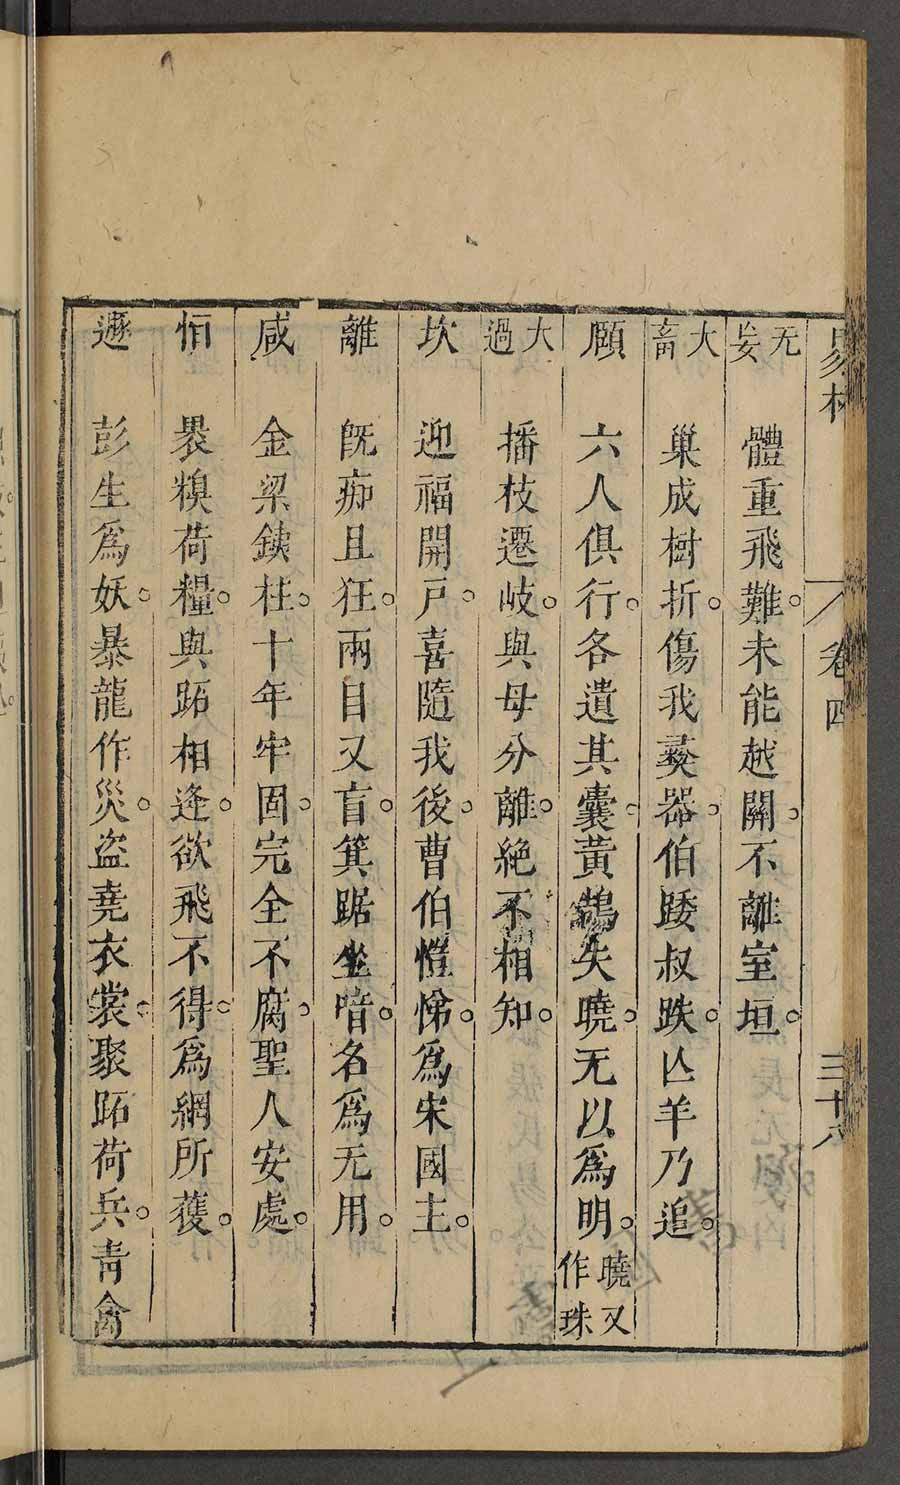 易林 卷四 三十八
无妄 體重飛難。未能越關。不離室垣。
大畜 巢成樹折。傷我彝器。伯踒叔跌。亾羊乃追。
頤 六人俱行。各遺其囊。黃鵠失曉。无以爲明。曉又作珠
大過 播枝遷岐。與母分離。絶不相知。
坎 迎福開戶。喜隨我後。曹伯愷悌。爲宋國主。
離 旣痴且狂。兩目又盲。箕踞坐喑。名爲无用。
咸 金梁鐵柱。十年牢固。完全不腐。聖人安處。
恒 褁糗荷糧。與跖相逢。欲飛不得。爲網所獲。
遯 彭生爲妖。暴龍作災。盜堯衣裳。聚跖荷兵。靑禽